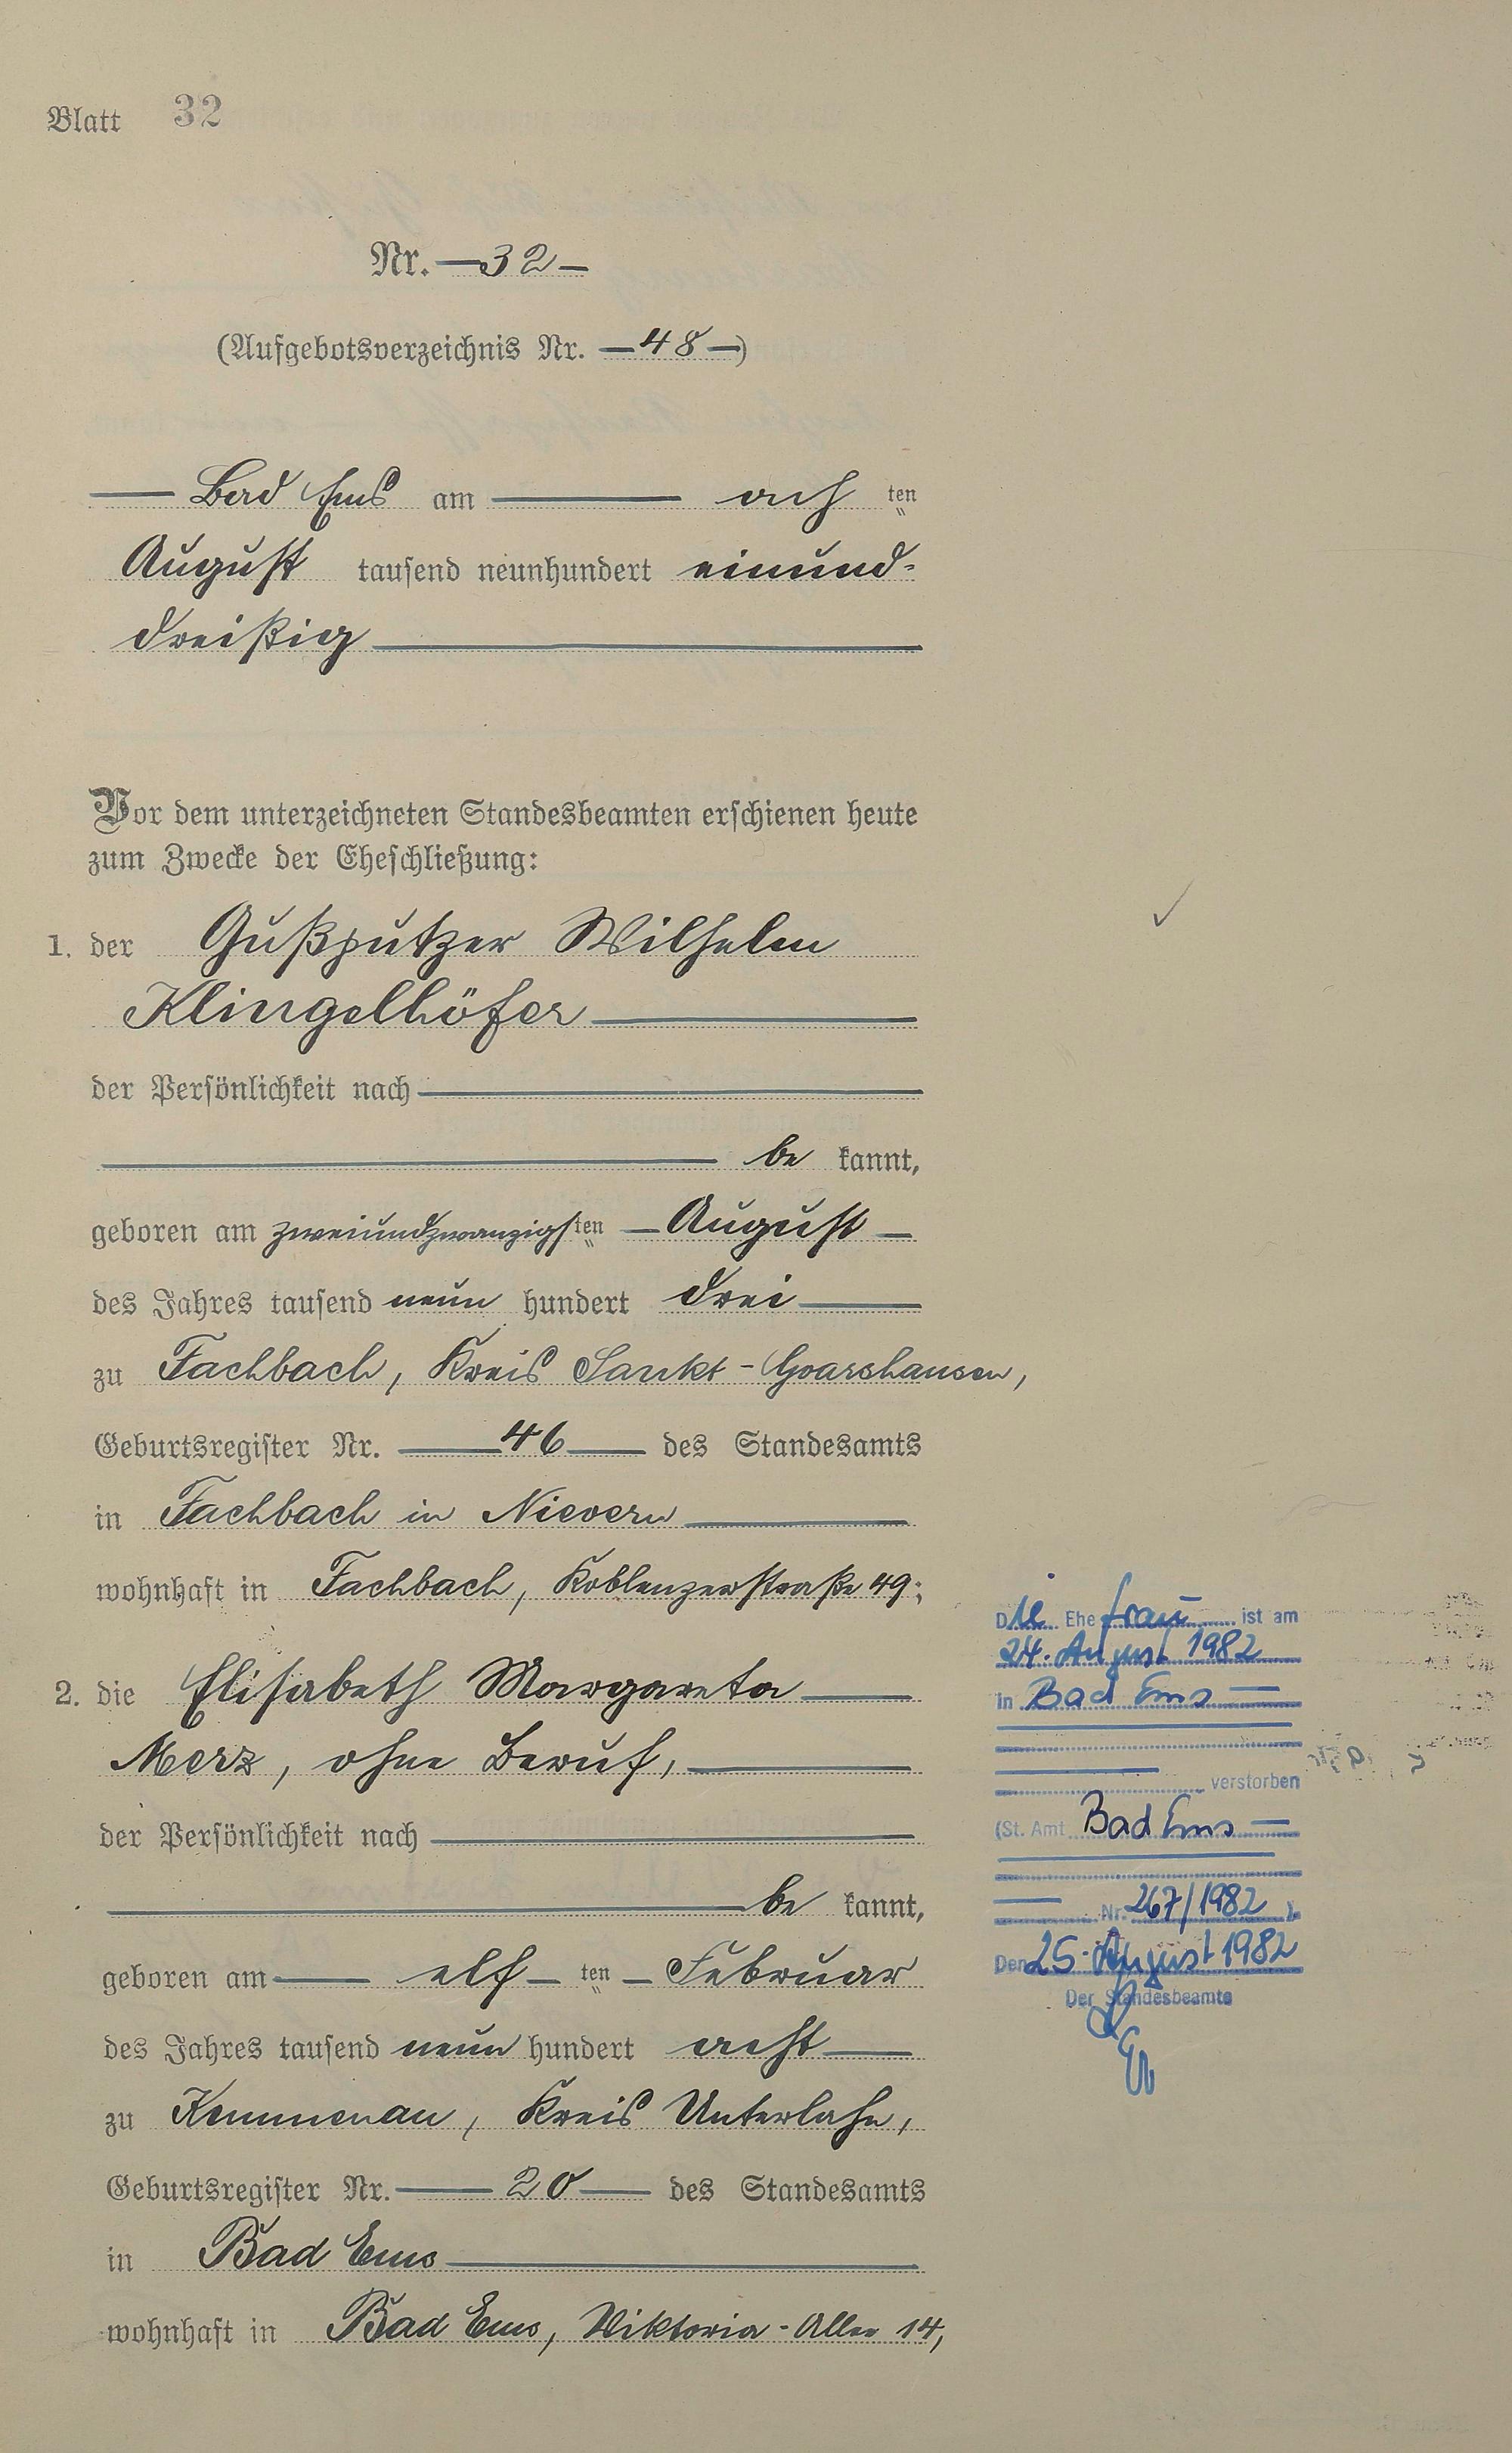 Blatt 32
Nr. 32
(Aufgebotsverzeichnis Nr. 48)
Bad Ems am ach ten
August tausend neunhundert einund-
dreißig
Vor dem unterzeichneten Standesbeamten erschienen heute
zum Zwecke der Eheschließung:
1. der Gußputzer Wilhelm
Klingelhöfer
der Persönlichkeit nach
be kannt,
geboren am zweiundzwanzigsten August
des Jahres tausend neun hundert drei
zu Fachbach, Kreis Sankt-Goarshausen,
Geburtsregister Nr. 46 des Standesamts
in Fachbach in Nievern
wohnhaft in Fachbach, Koblenzerstraße 49;
2. die Elisabeth Margareta
Merz, ohne Beruf,
der Persönlichkeit nach
be kannt,
geboren am elf ten Februar
des Jahres tausend neun hundert acht
zu Kemmenau, Kreis Unterlahn,
Geburtsregister Nr. 20 des Standesamts
in Bad Ems
wohnhaft in Bad Ems, Viktoria-Allee 14,
Die Ehefrau ist am
24. August 1982
in Bad Ems
verstorben
(St. Amt Bad Ems
Nr. 267/1982 ).
Den 25. August 1982
Der Standesbeamte